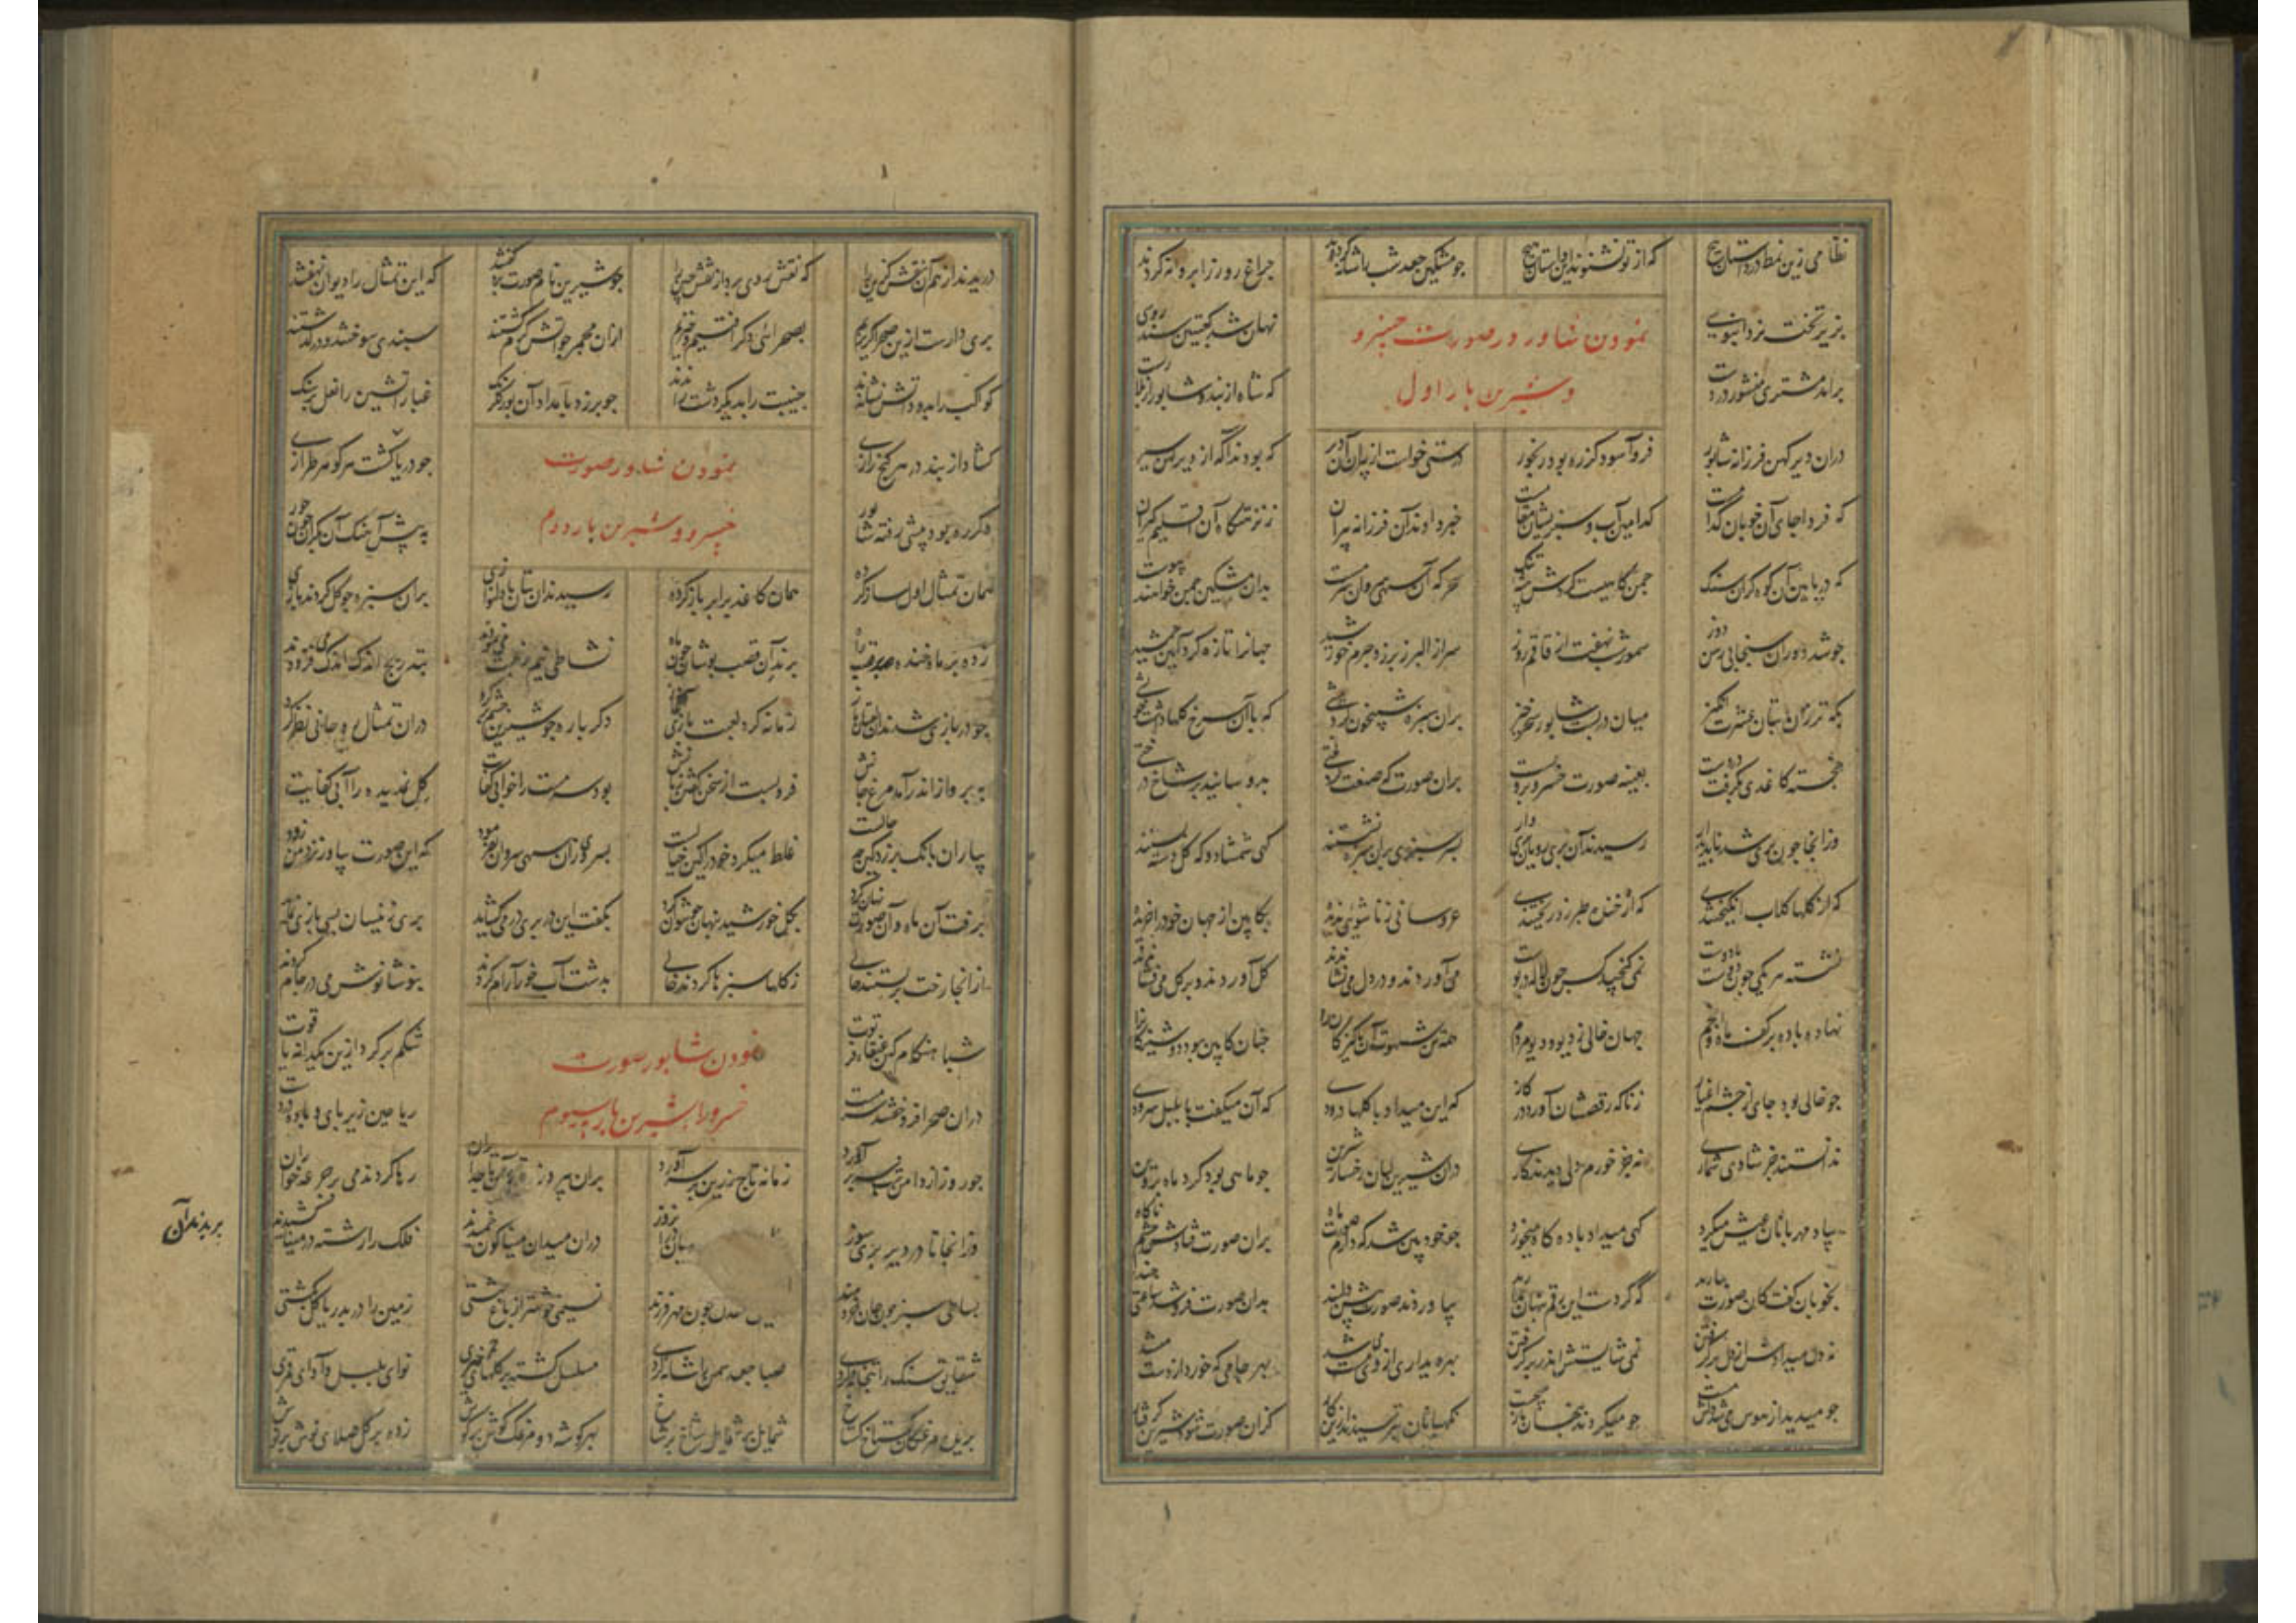 نظامی زین نمط در داستان هیچ که از تو نشنوند این داستان هیچ چو مشکین جعد شب را شانه کردند چراغ روز را پروانه کردند
بزیر تخت نرد آبنوسی نهان شد کعبتین سندروسی
نمودن شاور در صورت خسرو
برآمد مشتری منشور در دست که شاه از بند و شاپور از بلا رست
و شیرین بار اول
دران دیر کهن فرزانه شاپور فرو آسود کز ره بود رنجور درستی خواست از پیران آن دیر که بودند آگه از دیرین سیر
که فردا جای آن خوبان کدامست کدامین آب و سبزیشان مقامست خبر دادند آن فرزانه پیران ز نزهتگاه آن اقلیم گیران
که در پایین آن کوه گران سنگ چمن گاهیست گردش بیشه تنگ سحرگه آن سهی سروان سرمست بدان مشکین چمن خواهند پیوست
چو شد دوران سنجابی وشق دوز سمور شب نهفت از قاقم روز سر از البرز برزد جرم خورشید جهانرا تازه کرد آیین جمشید
پگه ترزان بتان عشرت انگیز میان دربست شاپور سحرخیز بران سبزه شبیخون کرد پیشی که با آن سرخ گلها داشت خویشی
خجسته کاغذی بگرفت در دست بعینه صورت خسرو برو بست بران صورت که صنعت کرد لختی بدوسانید بر شاخ درختی
وز آنجا چون پری شد ناپدیدار رسیدند آن پری رویان پری وار بسرسبزی بران سبزه نشستند گهی شمشاد و گه گل دسته بستند
گه از گلها گلاب انگیختندی گه از خنده طبرزد ریختندی عروسانی زناشویی ندیده بکابین از جهان خود را خریده
نشسته هر یکی چون دوست با دوست نمی گنجید کس چون لاله در پوست می آوردند و در دل می نشاندند گل آوردند و بر گل می فشاندند
نهاده باده بر کف ماه و انجم جهان خالی ز دیو و دیو مردم همه تن شهوت آن پاکیزگانرا چنان کایین بود دوشیزگانرا
چو خالی بود جای از چشم اغیار ز تاک رقصشان آورد در کار گه این میداد با گلها درودی گه آن میگفت با بلبل سرودی
ندانستند جز شادی شماری نه جز خرم دلی دیدند کاری دران شیرین لبان رخسار شیرین چو ماهی بود گرد ماه پروین
بیاد مهربانان عیش میکرد گهی میداد باده گاه میخورد چو خودبین شد که دارد صورت ماه بران صورت فتادش چشم ناگاه
بخوبان گفت کان صورت بیارید که کردست این رقم پنهان مدارید بیاوردند صورت پیش دلبند بدان صورت فرو شد ساعتی چند
نه دل میداد ازو دل برگرفتن نمی شایستش اندر بر گرفتن بهر دیداری از وی مست میشد بهر جامی که خورد از دست میشد
چو میدید از هوس می شد دلش سست چو میکردند پنهان باز میجست نگهبانان بترسیدند ازین کار کزان صورت شود شیرین گرفتار
دریدند از هم آن نقش گزین را که نقش روی برد از نقش چین را چو شیرین نام صورت برد گفتند که این تمثال را دیوان نهفتند
پری دارست ازین صحرا گریزیم بصحرائی دگر افتیم و خیزیم ازان مجمر چو آتش گرم گشتند سپندی سوختند و در گذشتند
کواکب را بدود آتش نشاندند جنیبت را بدیگر دشت راندند چو برزد بامداد آن بور گلرنگ غبار آتشین را نعل بر سنگ
گشاد از بند در هر گنج رازی چو دریا گشت هر کوهی طرازی
نمودن شاور صورت
دگر ره بود پیشی رفته شاپور به پیش آهنگ آن بکران چون حور
خسرو و شیرین بار دوم
همان تمثال اول ساز کرده همان کاغذ برابر باز کرده رسیدند آن بتان با دلنوازی بران سبزه چو گل کردند بازی
زده بر ماه خنده بر قصب راه پرند آن قصب پوشان چون ماه نشاطی نیم رغبت می نمودند بتدریج اندک اندک می فزودند
چو در بازی شدند آن لعبتان باز زمانه کرد لعبت بازی آغاز دگر باره چو شیرین چشم بر کرد دران تمثال روحانی نظر کرد
به پرواز اندر آمد مرغ جانش فرو بست از سخن گفتن زبانش بود سرمست را خوابی کفایت گل نم دیده را آبی کفایت
بیاران بانگ برزد کین چه حالت غلط میکرد خود را کین خیالت بسروی زان سهی سروان بفرمود که این صورت بیاور نزد من زود
برفت آن ماه و آن صورت نهان کرد بگل خورشید پنهان چون توان کرد بگفت این در پری در می گشاید پری زینسان بسی بازی نماید
از آنجا رخت بربستند حالی ز گلها سبزه را کردند خالی بدشت آبخور آرام کردند بنوشانوش می در جام کردند
شباهنگام کین عنقای فرتوت شکم پر کرد ازین یکدانه یاقوت
نمودن شاپور صورت
دران صحرا فرو خفتند سرمست ریاحین زیر پای و باده در دست
خسرو را بشیرین بار سیوم
چو روز از دامن شب سر برآورد زمانه تاج زرین بر سر آورد بران پیروزه تخت آن تاجداران رها کردند می بر جرعه خواران
وز آنجا تا در دیر پری سوز دران میدان میناگون چمیدند فلک را رشته در مینا کشیدند
بساطی سبز چون جان خردمند چون مهر فرزند نسیمی خوشتر از باغ بهشتی زمین را در بدریا گل بکشتی
شقایق سنگ را بتخانه کرده صبا جعد سمن را شانه کرده مسلسل گشته بر گلهای حمری نوای بلبل و آوای قمری
پرنده مرغکان گستاخ گستاخ شمایل بر شمایل شاخ بر شاخ بهر گوشه دو مرغک گوش بر گوش زده بر گل صلای نوش بر نوش
بریدند آن